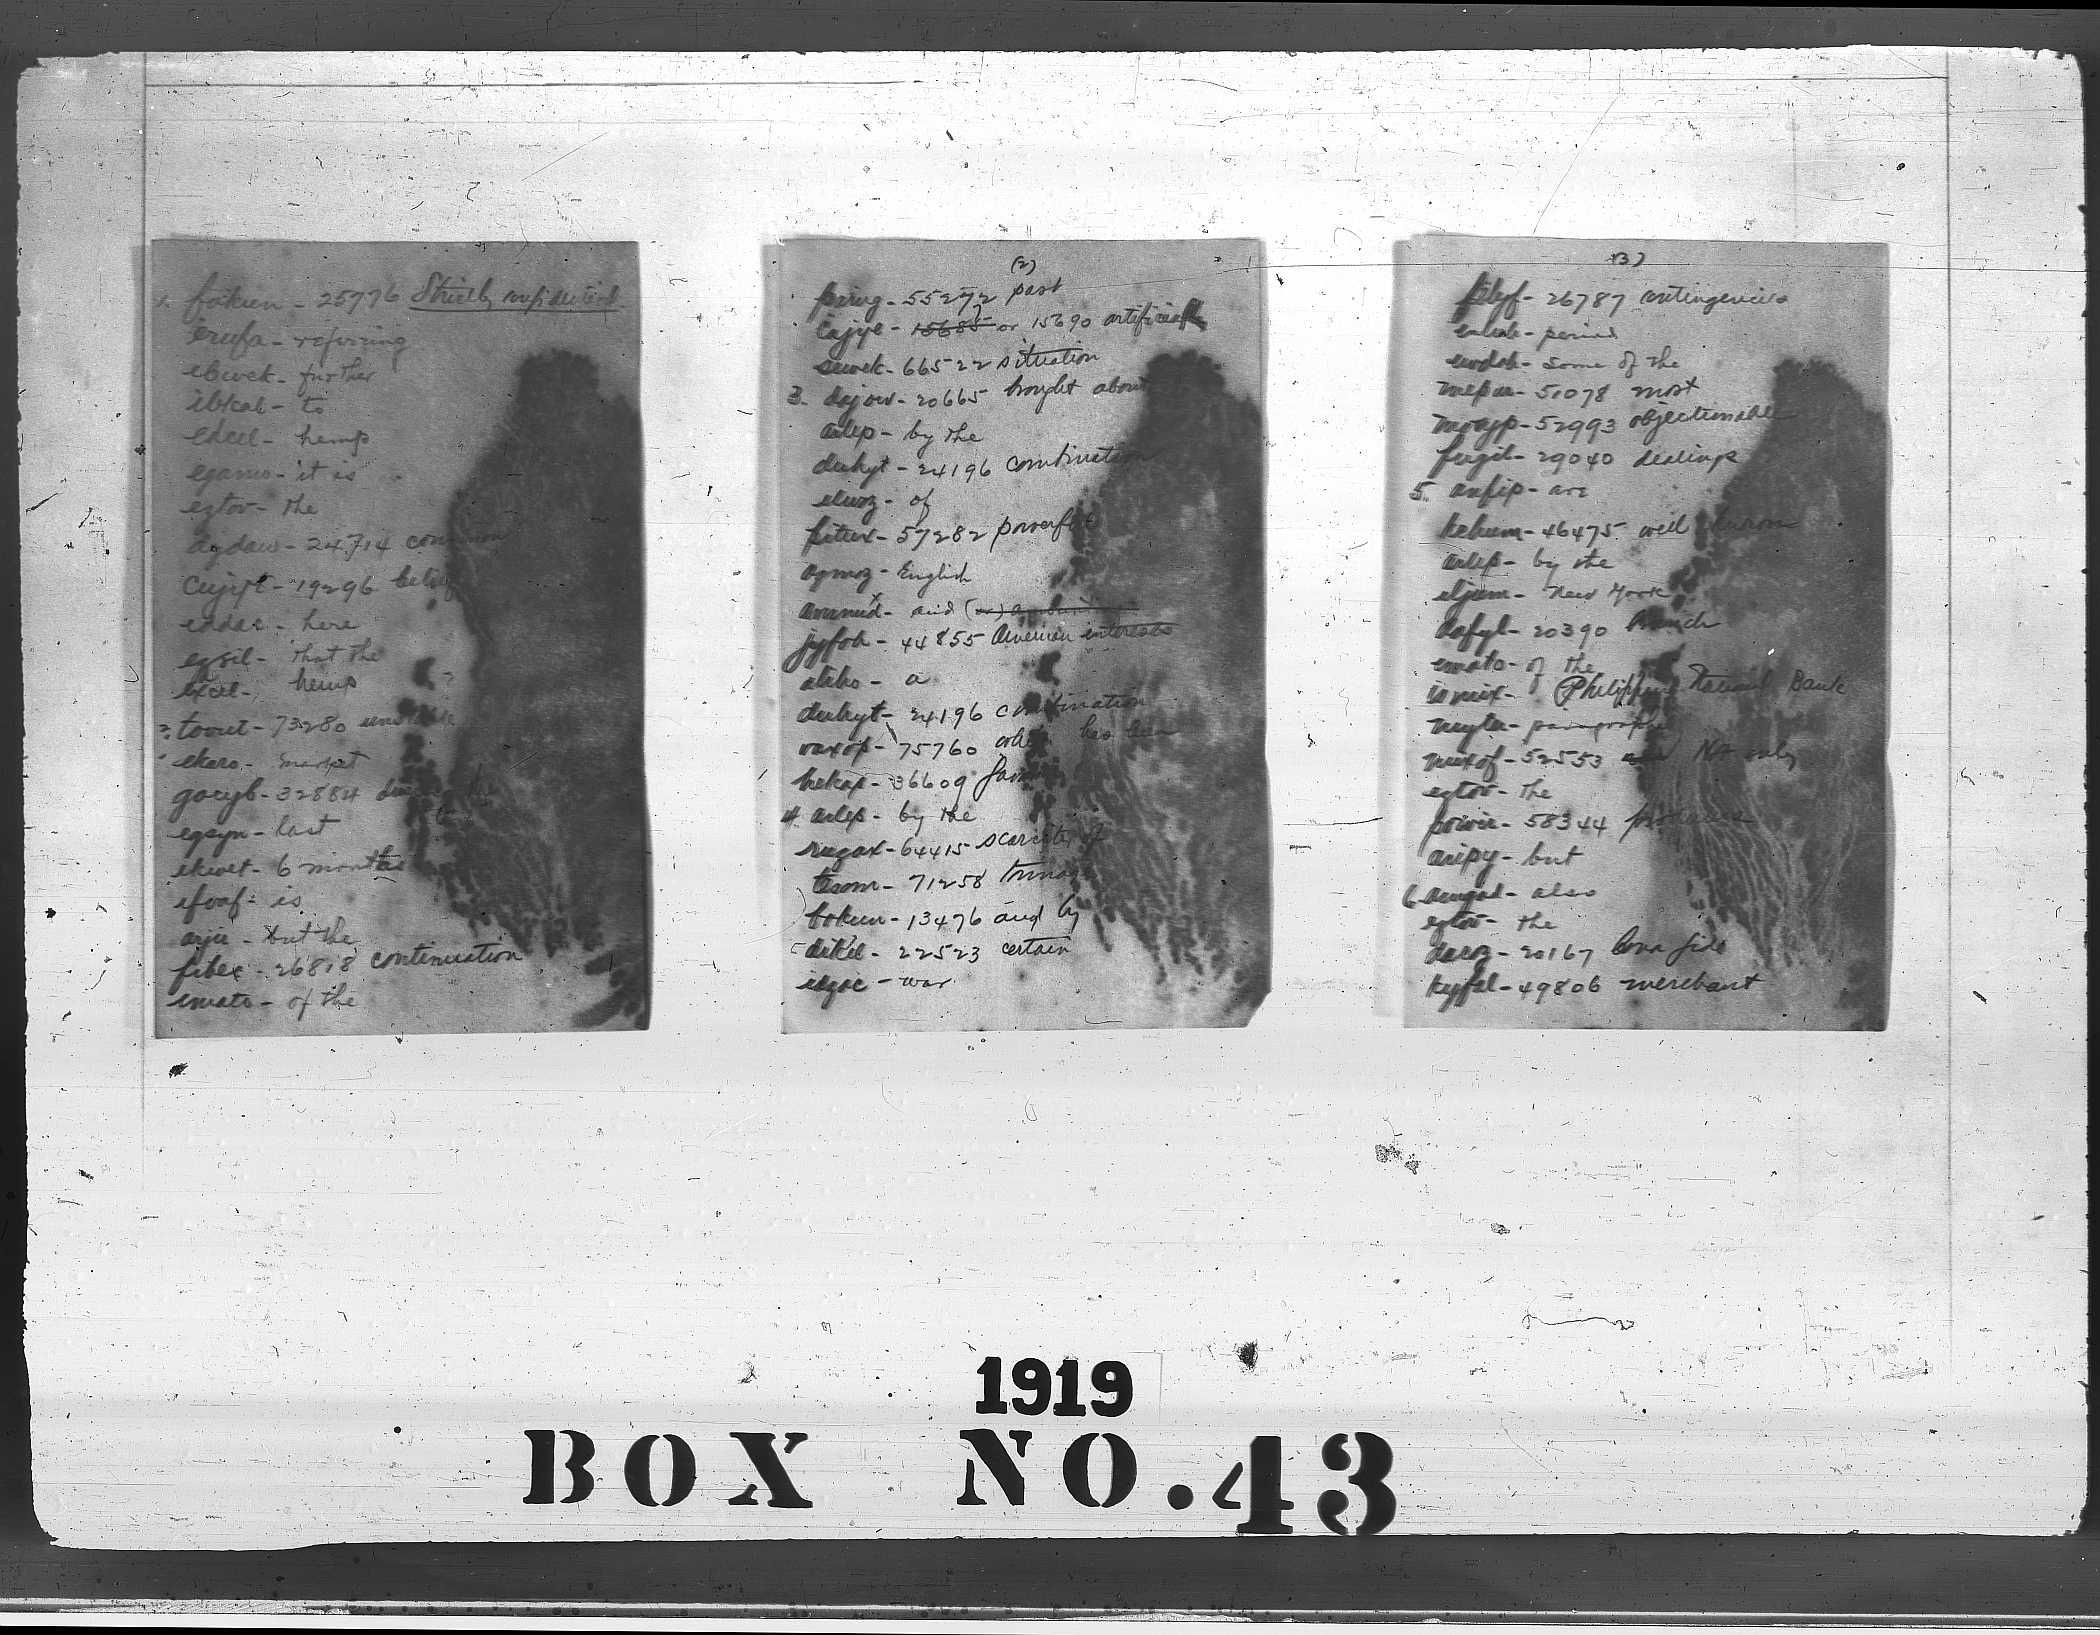 1. fokuen - 25776 Strictly confidential
erufa - referring
ebwek - further
ibkal - to
edcel - hemp
egamo - it is
egtov - the
dydaw - 24714 common
cujyt - 19296 belief
eddac - here
egsil - that the
excel - hemp
2. tovut - 73280
ekaro - market
gocyb - 32884
egsyn - last
ekwet - 6 months
efoaf - is
arju - but the
fibex - 26818 continuation
emato - of the
(2)
pirug - 55272 past
cajye - 15685 or 15690 artificial
suwek - 66522 situation
3. dajow - 20665 brought about
arlep - by the
duhyt - 24196 combination
eluoz - of
pitux - 57282 powerful
apmoz - English
avumud - and (or)
jyfoh - 44855 American interests
aleho - a
duhyt - 24196 combination
vaxop - 75760 has been
hekap - 36609
4 arlep - by the
rugax - 64415 scarcity of
tesom - 71258 tonnage
bokun - 13476 and by
dikel - 22523 certain
elgoc - war
(3)
fibyf - 26787 contingencies
period
ewdah - some of the
mepar - 51078 most
mogyp - 52993 objectionable
fugil - 29040 dealings
5. anfip - are
kehum - 46475 well known
arlep - by the
eljum - New York
dafyl - 20390 branch
emato - of the
ismix - Philippine National Bank
meyla - paragraph
muxof - 52553 Not only
egtov - the
poivir - 58344
aripy - but
6. also
egtov - the
daroz - 20167 bona fide
kyfal - 49806 merchant
1919
BOX NO. 43